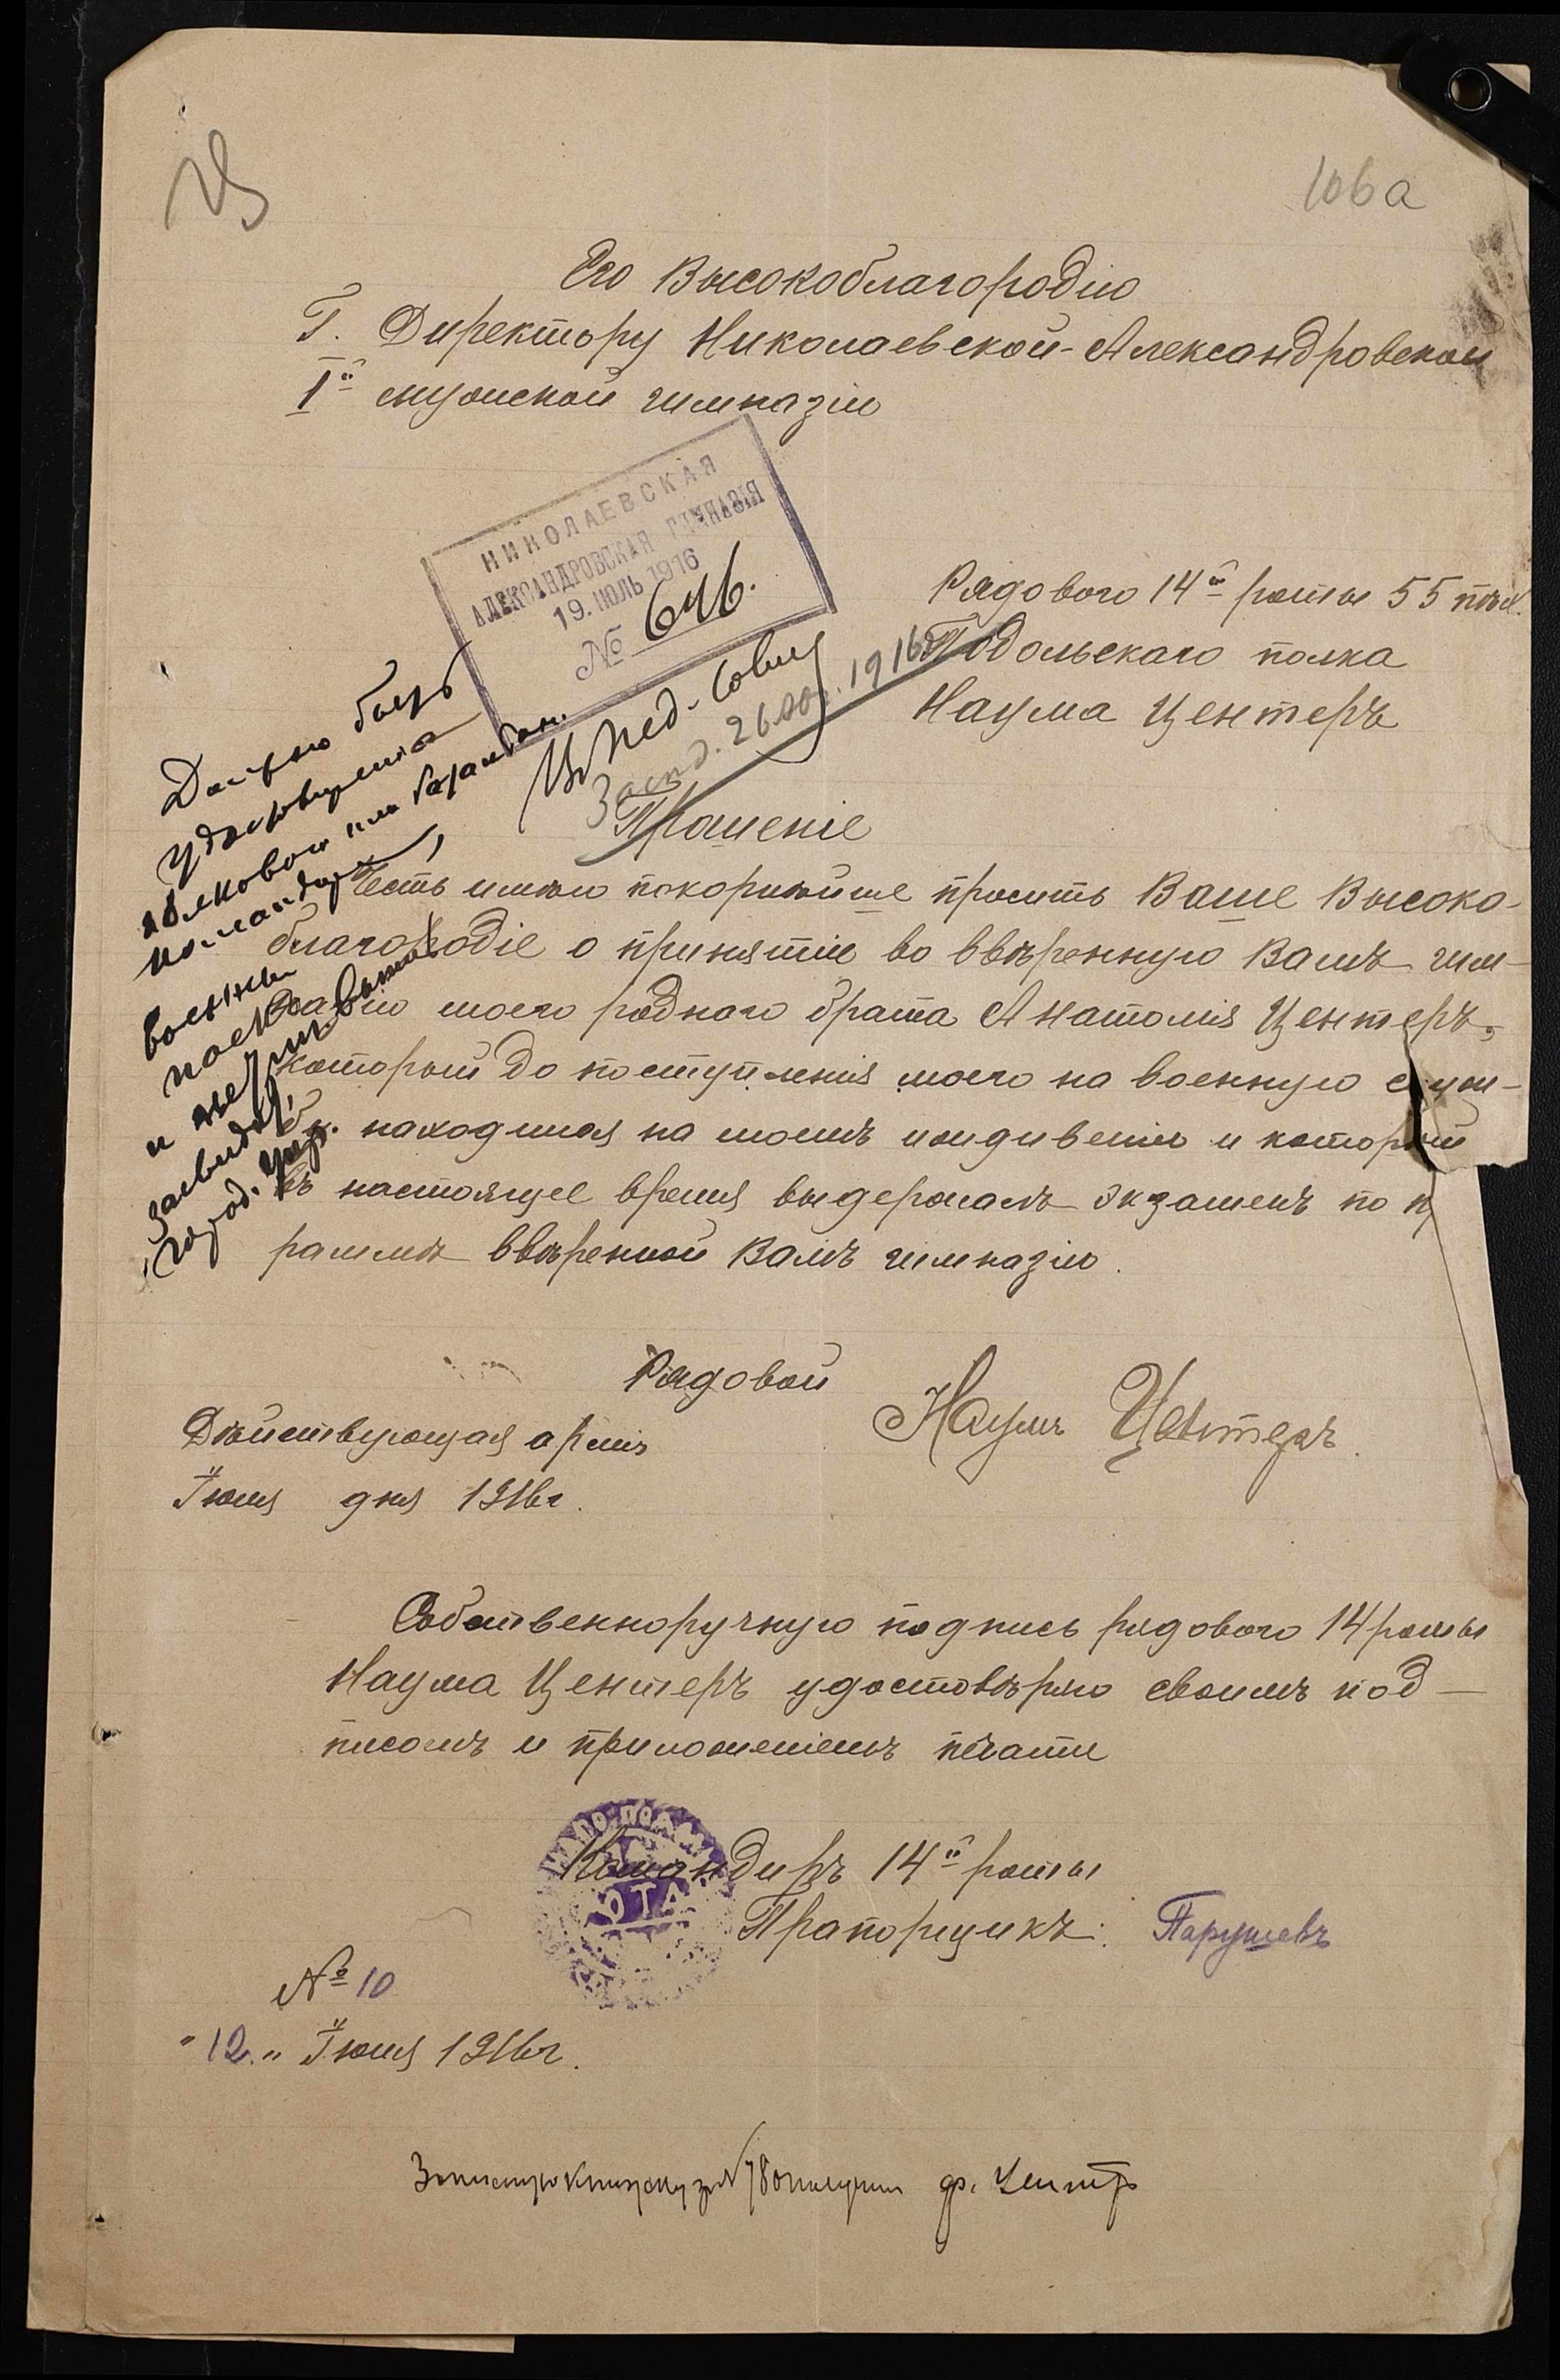 106а
Его Высокоблагородію
Г. Директору Николаевской-Александровской
Iй мужской гимназіи
НИКОЛАЕВСКАЯ
АЛЕКСАНДРОВСКАЯ ГИМНАЗІЯ
19. ІЮЛЬ 1916
№ 646.
Рядового 14й роты 55 пѣх.
Подольскаго полка
Наума Центеръ
Должно быть
удостоверение
полковой или
командира,
Въ Пед. Совѣт
Засѣд. 26 1916
Прошеніе
Честь имѣю покорнѣйше просить Ваше Высоко-
благородіе о принятіи во ввѣренную Вамъ гим-
назію моего родного брата Анатолія Центеръ,
который до поступленія моего на военную служ-
находился на моемъ иждивеніи и который
въ настоящее время выдержалъ экзаменъ по п
раммѣ ввѣренной Вамъ гимназіи.
Рядовой Наумъ Центеръ.
Дѣйствующая армія
Іюня дня 1916г.
Собственноручную подпись рядового 14 роты
Наума Центеръ удостовѣряю своимъ под-
писомъ и приложеніемъ печати
Командиръ 14й роты
РОТА
Прапорщикъ: Парушевъ
№ 10
"12." Іюня 1916г.